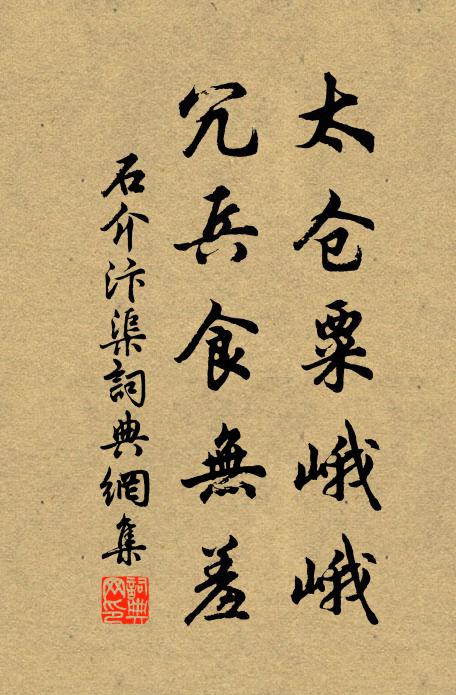 太仓粟峨峨
冗兵食無羞
石介汴渠詞典網集
詞典网印